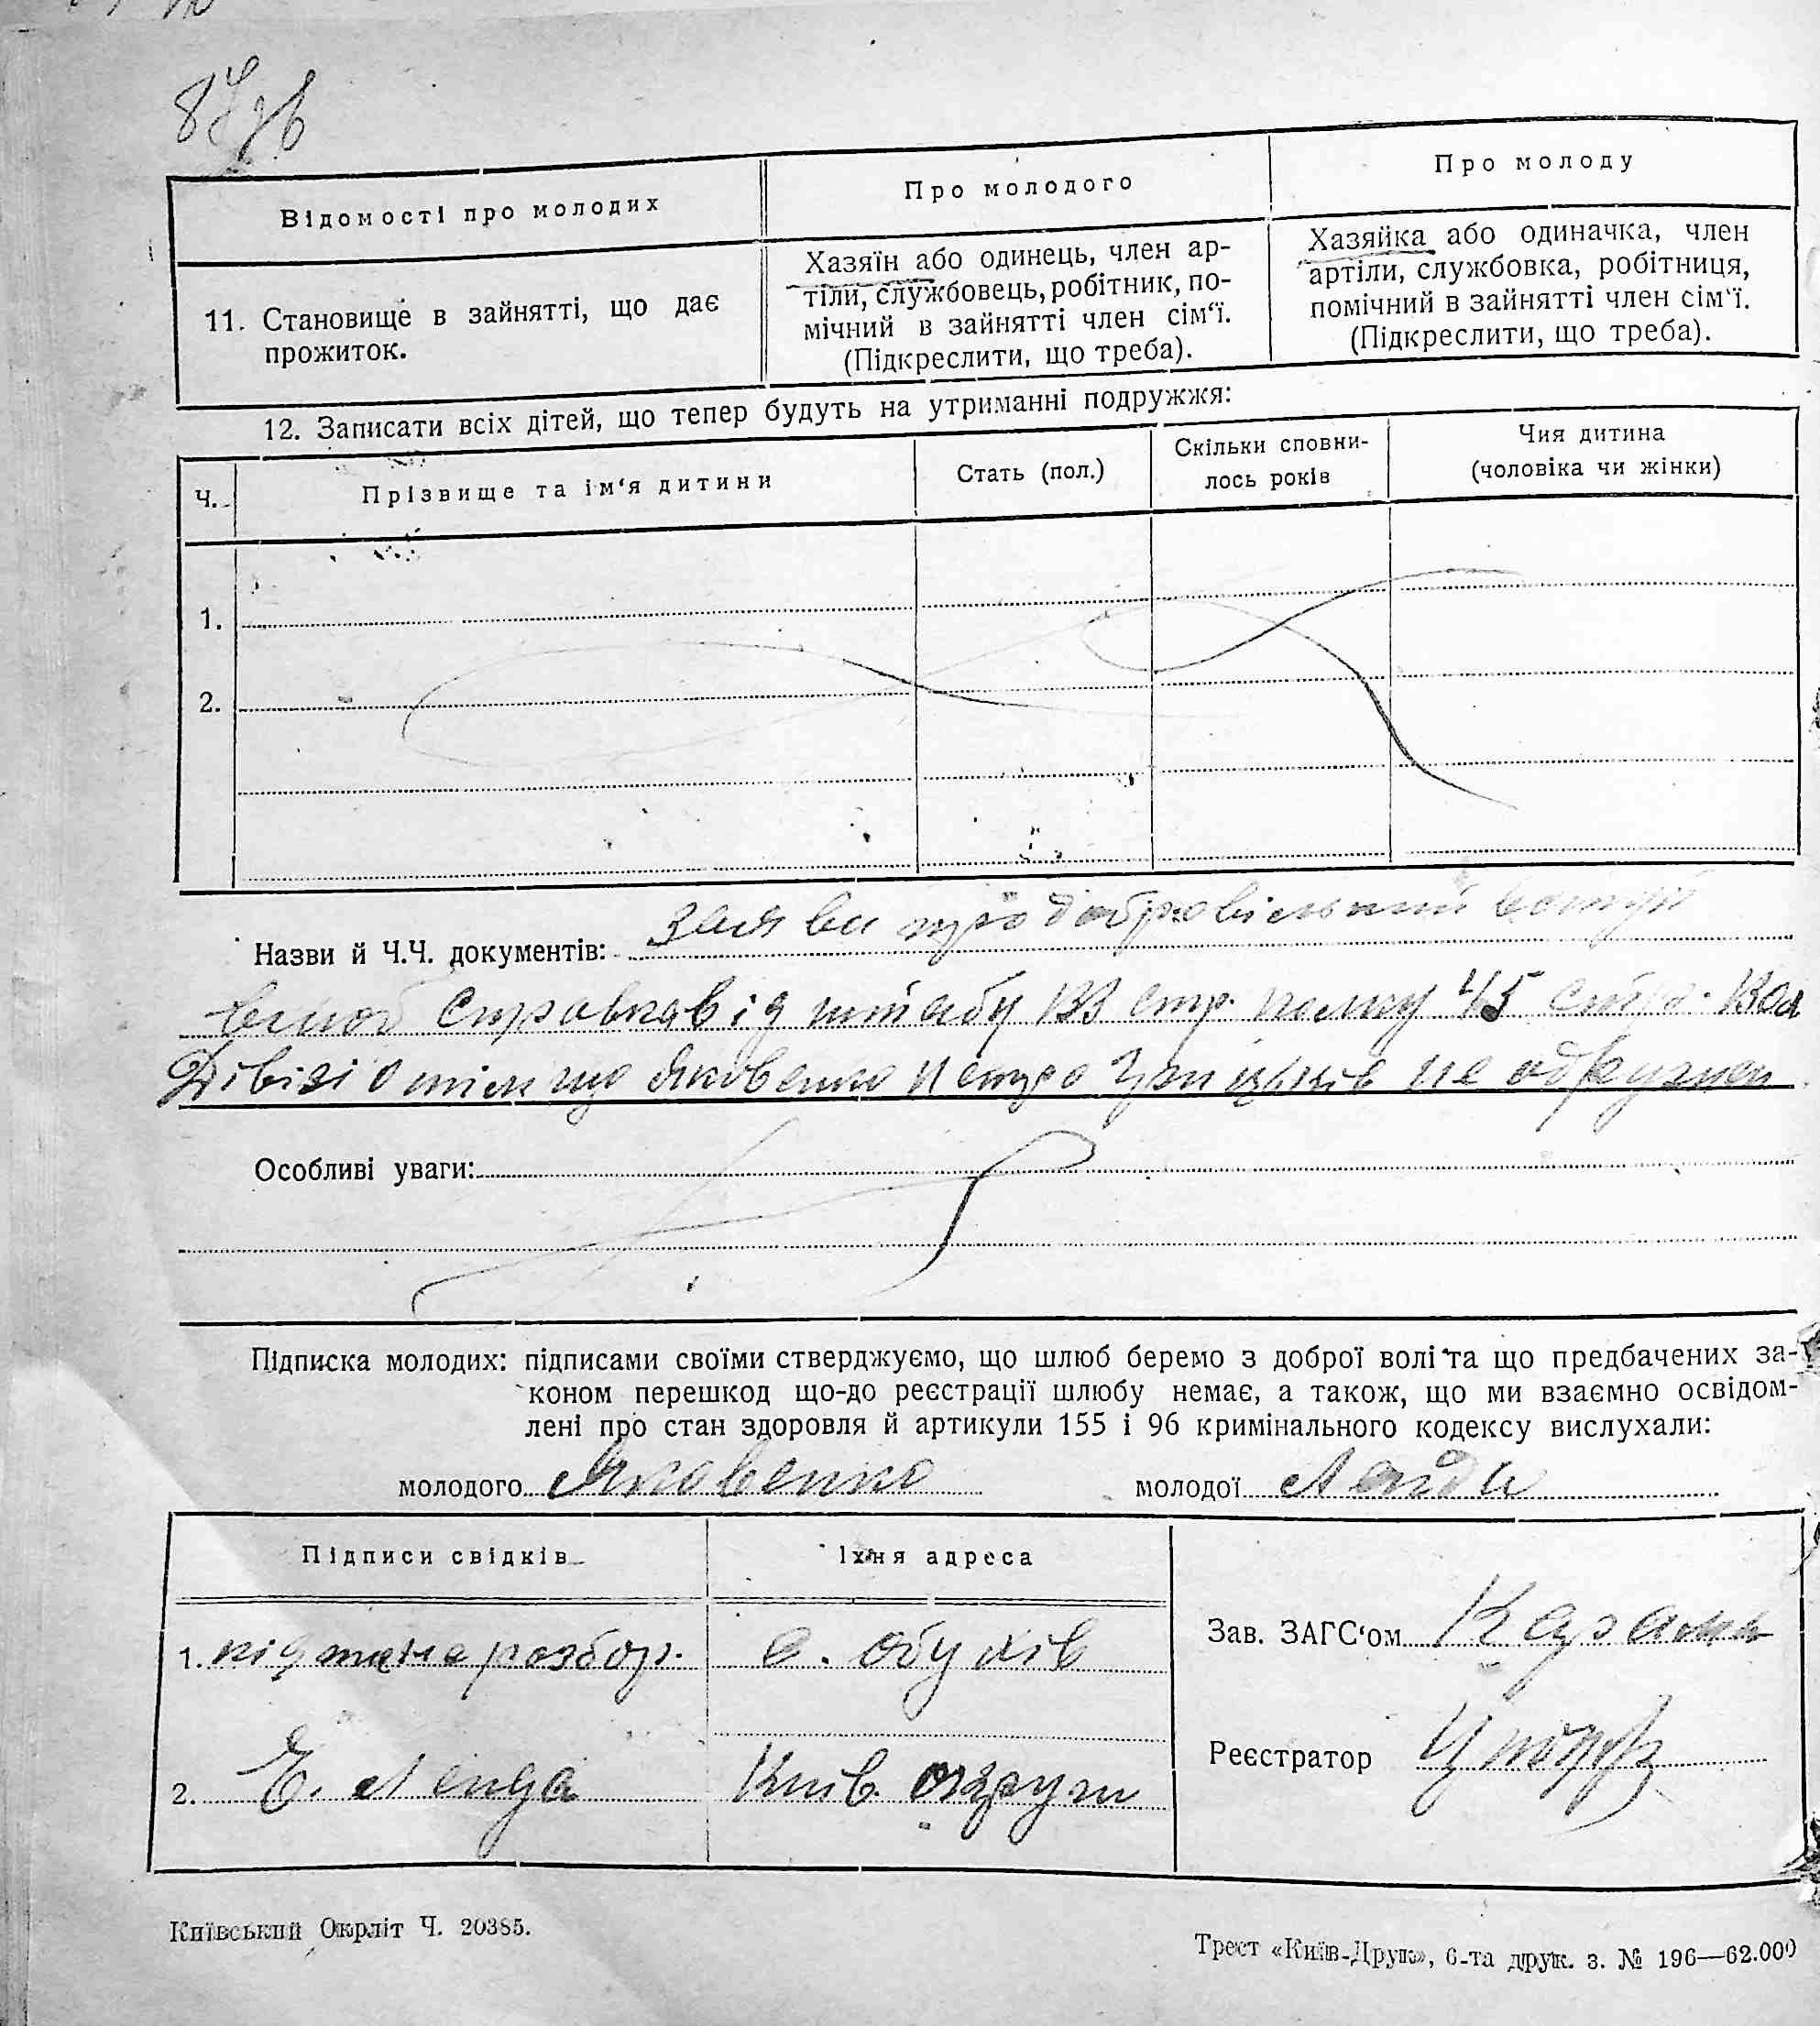 87зв
Відомості про молодих
Про молодого
Про молоду
11. Становище в зайнятті, що дає
прожиток.
Хазяїн або одинець, член ар-
тіли, службовець, робітник, по-
мічний в зайнятті член сім‘ї.
(Підкреслити, що треба).
Хазяйка або одиначка, член
артіли, службовка, робітниця,
помічний в зайнятті член сім‘ї.
(Підкреслити, що треба).
12. Записати всіх дітей, що тепер будуть на утриманні подружжя:
Ч.
Прізвище та ім‘я дитини
Стать (пол.)
Скільки сповни-
лось років
Чия дитина
(чоловіка чи жінки)
1.
2.
Назви й Ч.Ч. документів: заяви про добровільний вступ
Справка від штабу 133 стр. полку 45 стр.
Дівізі о тім що Яковенко Петро не одружен
Особливі уваги:
Підписка молодих: підписами своїми стверджуємо, що шлюб беремо з доброї волі та що предбачених за-
коном перешкод що-до реєстрації шлюбу немає, а також, що ми взаємно освідом-
лені про стан здоровля й артикули 155 і 96 кримінального кодексу вислухали:
молодого Яковенко молодої
Підписи свідків
Їхня адреса
1. підпис не розбор.
с. Обухів
Зав. ЗАГС‘ом
Реєстратор
2. Є. Ленда
Київ. округи
Київський Окрліт Ч. 20385.
Трест «Київ-Друк», 6-та друк. з. № 196—62.000